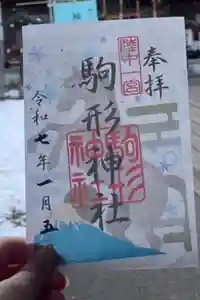 奉拝
陸中一宮
駒形神社
駒形
神社
令和七年一月五